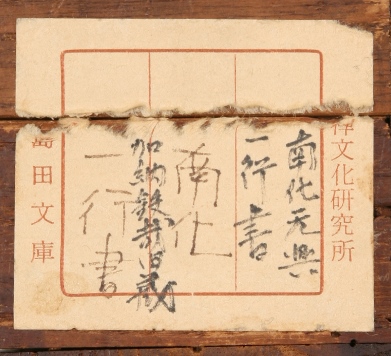 禅文化研究所
南化元興
一行書
南化
加納鉄哉旧蔵
一行書
島田文庫